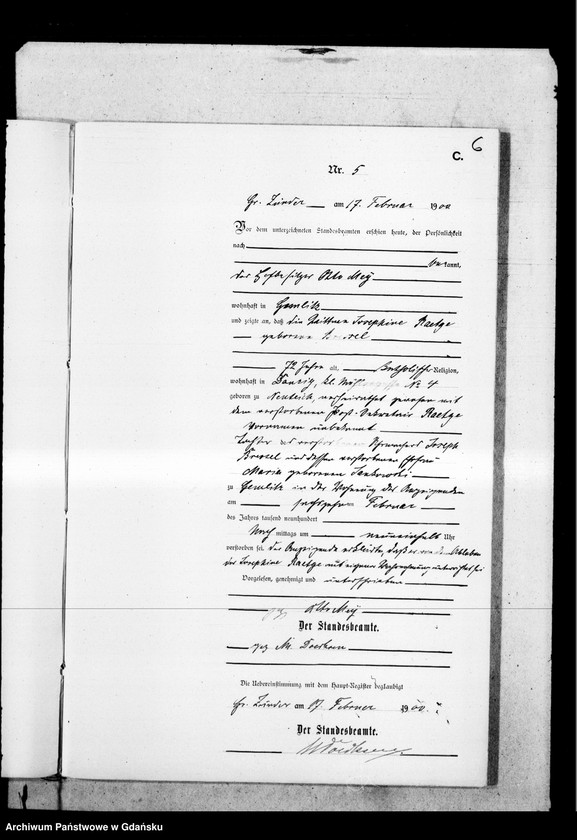 6
C.
Nr. 5
Gr. Zünder am 17. Februar 1900
Vor dem unterzeichneten Standesbeamten erschien heute, der Persönlichkeit
nach
bekannt,
der Hofbesitzer Otto Mey
wohnhaft in Gemlitz
und zeigte an, daß die Wittwe Josephine Raetge
geborene
72 Jahre alt, katholischer Religion,
wohnhaft in Danzig, kl. No 4
geboren zu Neuteich, verheirathet gewesen mit
dem verstorbenen Post-Sekretair Raetge
Vornamen unbekannt
Tochter des verstorbenen Joseph
und dessen verstorbenen Ehefrau
Maria geborenen
zu Gemlitz in der Wohnung des Anzeigenden
am sechszehnten Februar
des Jahres tausend neunhundert
Nachmittags um neuneinhalb Uhr
verstorben sei. Der Anzeigende erklärte, daß er von dem Ableben
der Josephine Raetge aus eigener Wissenschaft unterrichtet sei
Vorgelesen, genehmigt und unterschrieben
gez. Otto Mey
Der Standesbeamte.
gez. M. Doerksen
Die Uebereinstimmung mit dem Haupt-Register beglaubigt
Gr. Zünder am 17. Februar 1900.
Der Standesbeamte.
Archiwum Państwowe w Gdańsku